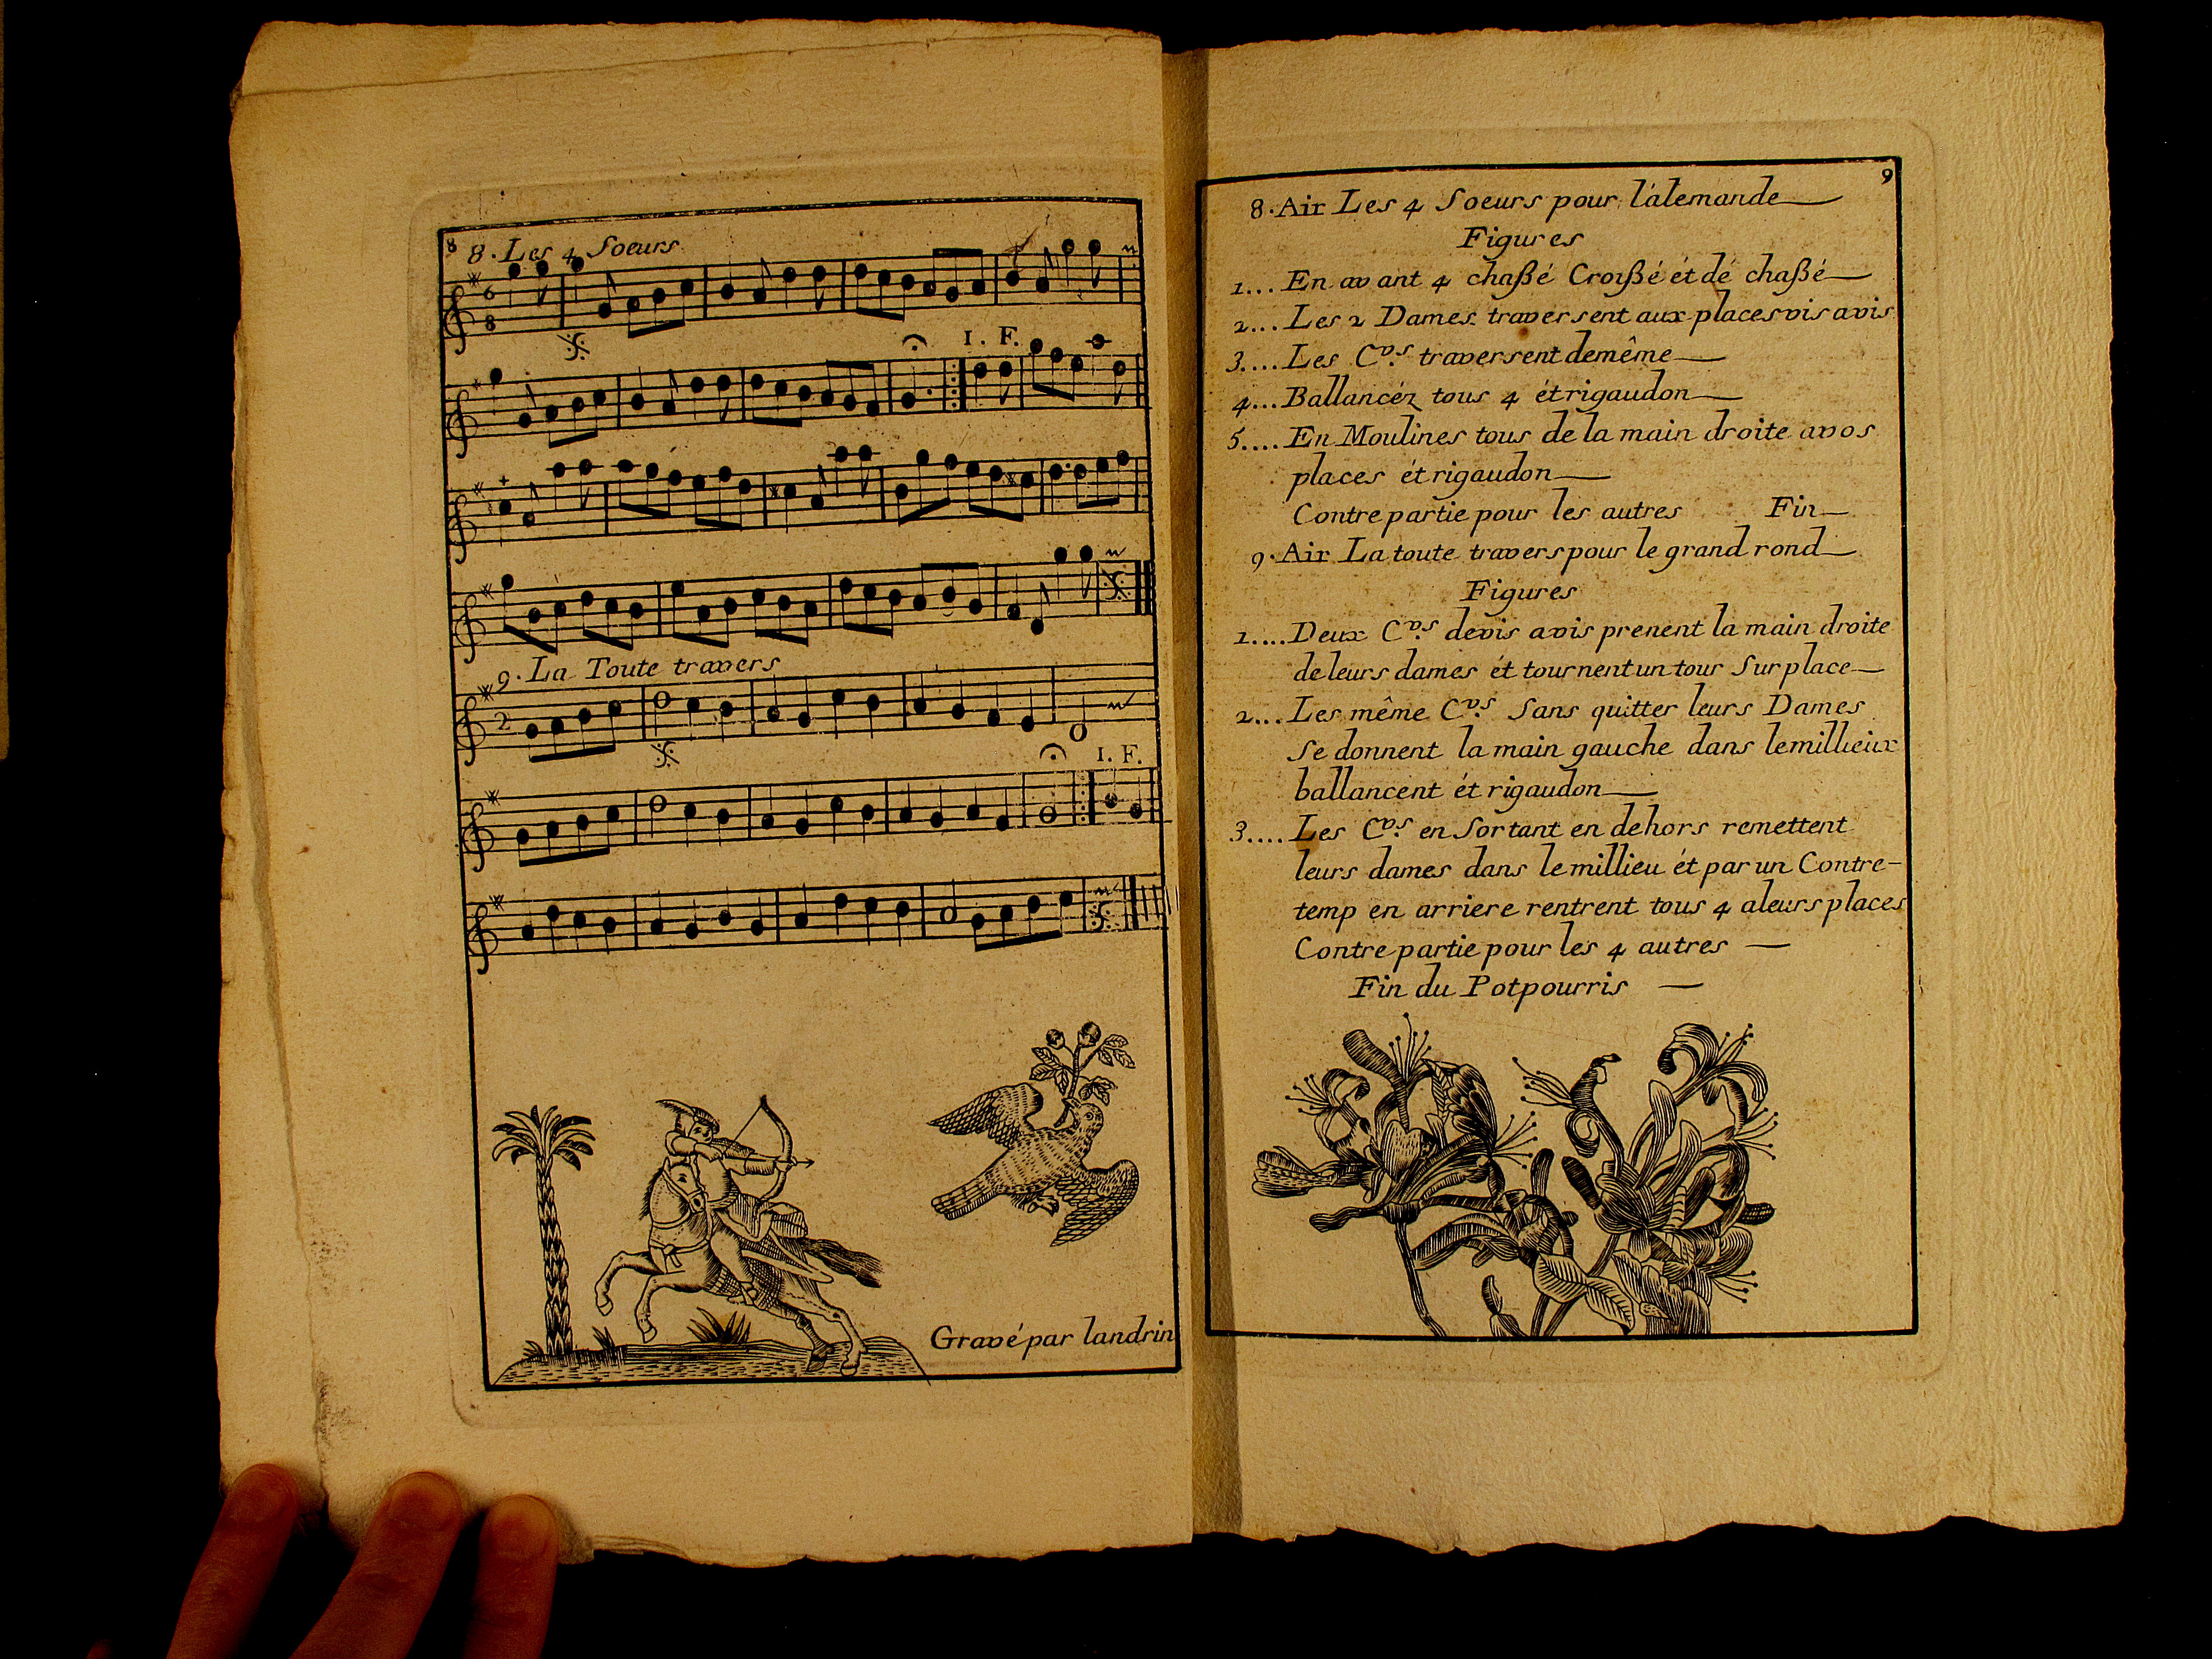 8
8. Les 4 Soeurs
6
8
I. F.
9. La Toute travers
2
I. F.
Gravé par landrin
9
8. Air Les 4 Soeurs pour l'alemande
Figures
1... En avant 4 chaßé Croißé ét dé chaßé
2... Les 2 Dames traversent aux places vis avis
3.... Les C.vs traversent demême
4... Ballancéz tous 4 ét rigaudon
5.... En Moulines tous de la main droite avos
places ét rigaudon
Contre partie pour les autres Fin
9. Air La toute travers pour le grand rond
Figures
1.... Deux C.vs devis avis prenent la main droite
de leurs dames ét tournent un tour Sur place
2... Les même C.vs Sans quitter leurs Dames
Se donnent la main gauche dans le millieux
ballancent ét rigaudon
3.... Les C.vs en Sortant en dehors remettent
leurs dames dans le millieu ét par un Contre-
temp en arriere rentrent tous 4 aleurs places
Contre partie pour les 4 autres
Fin du Potpourris